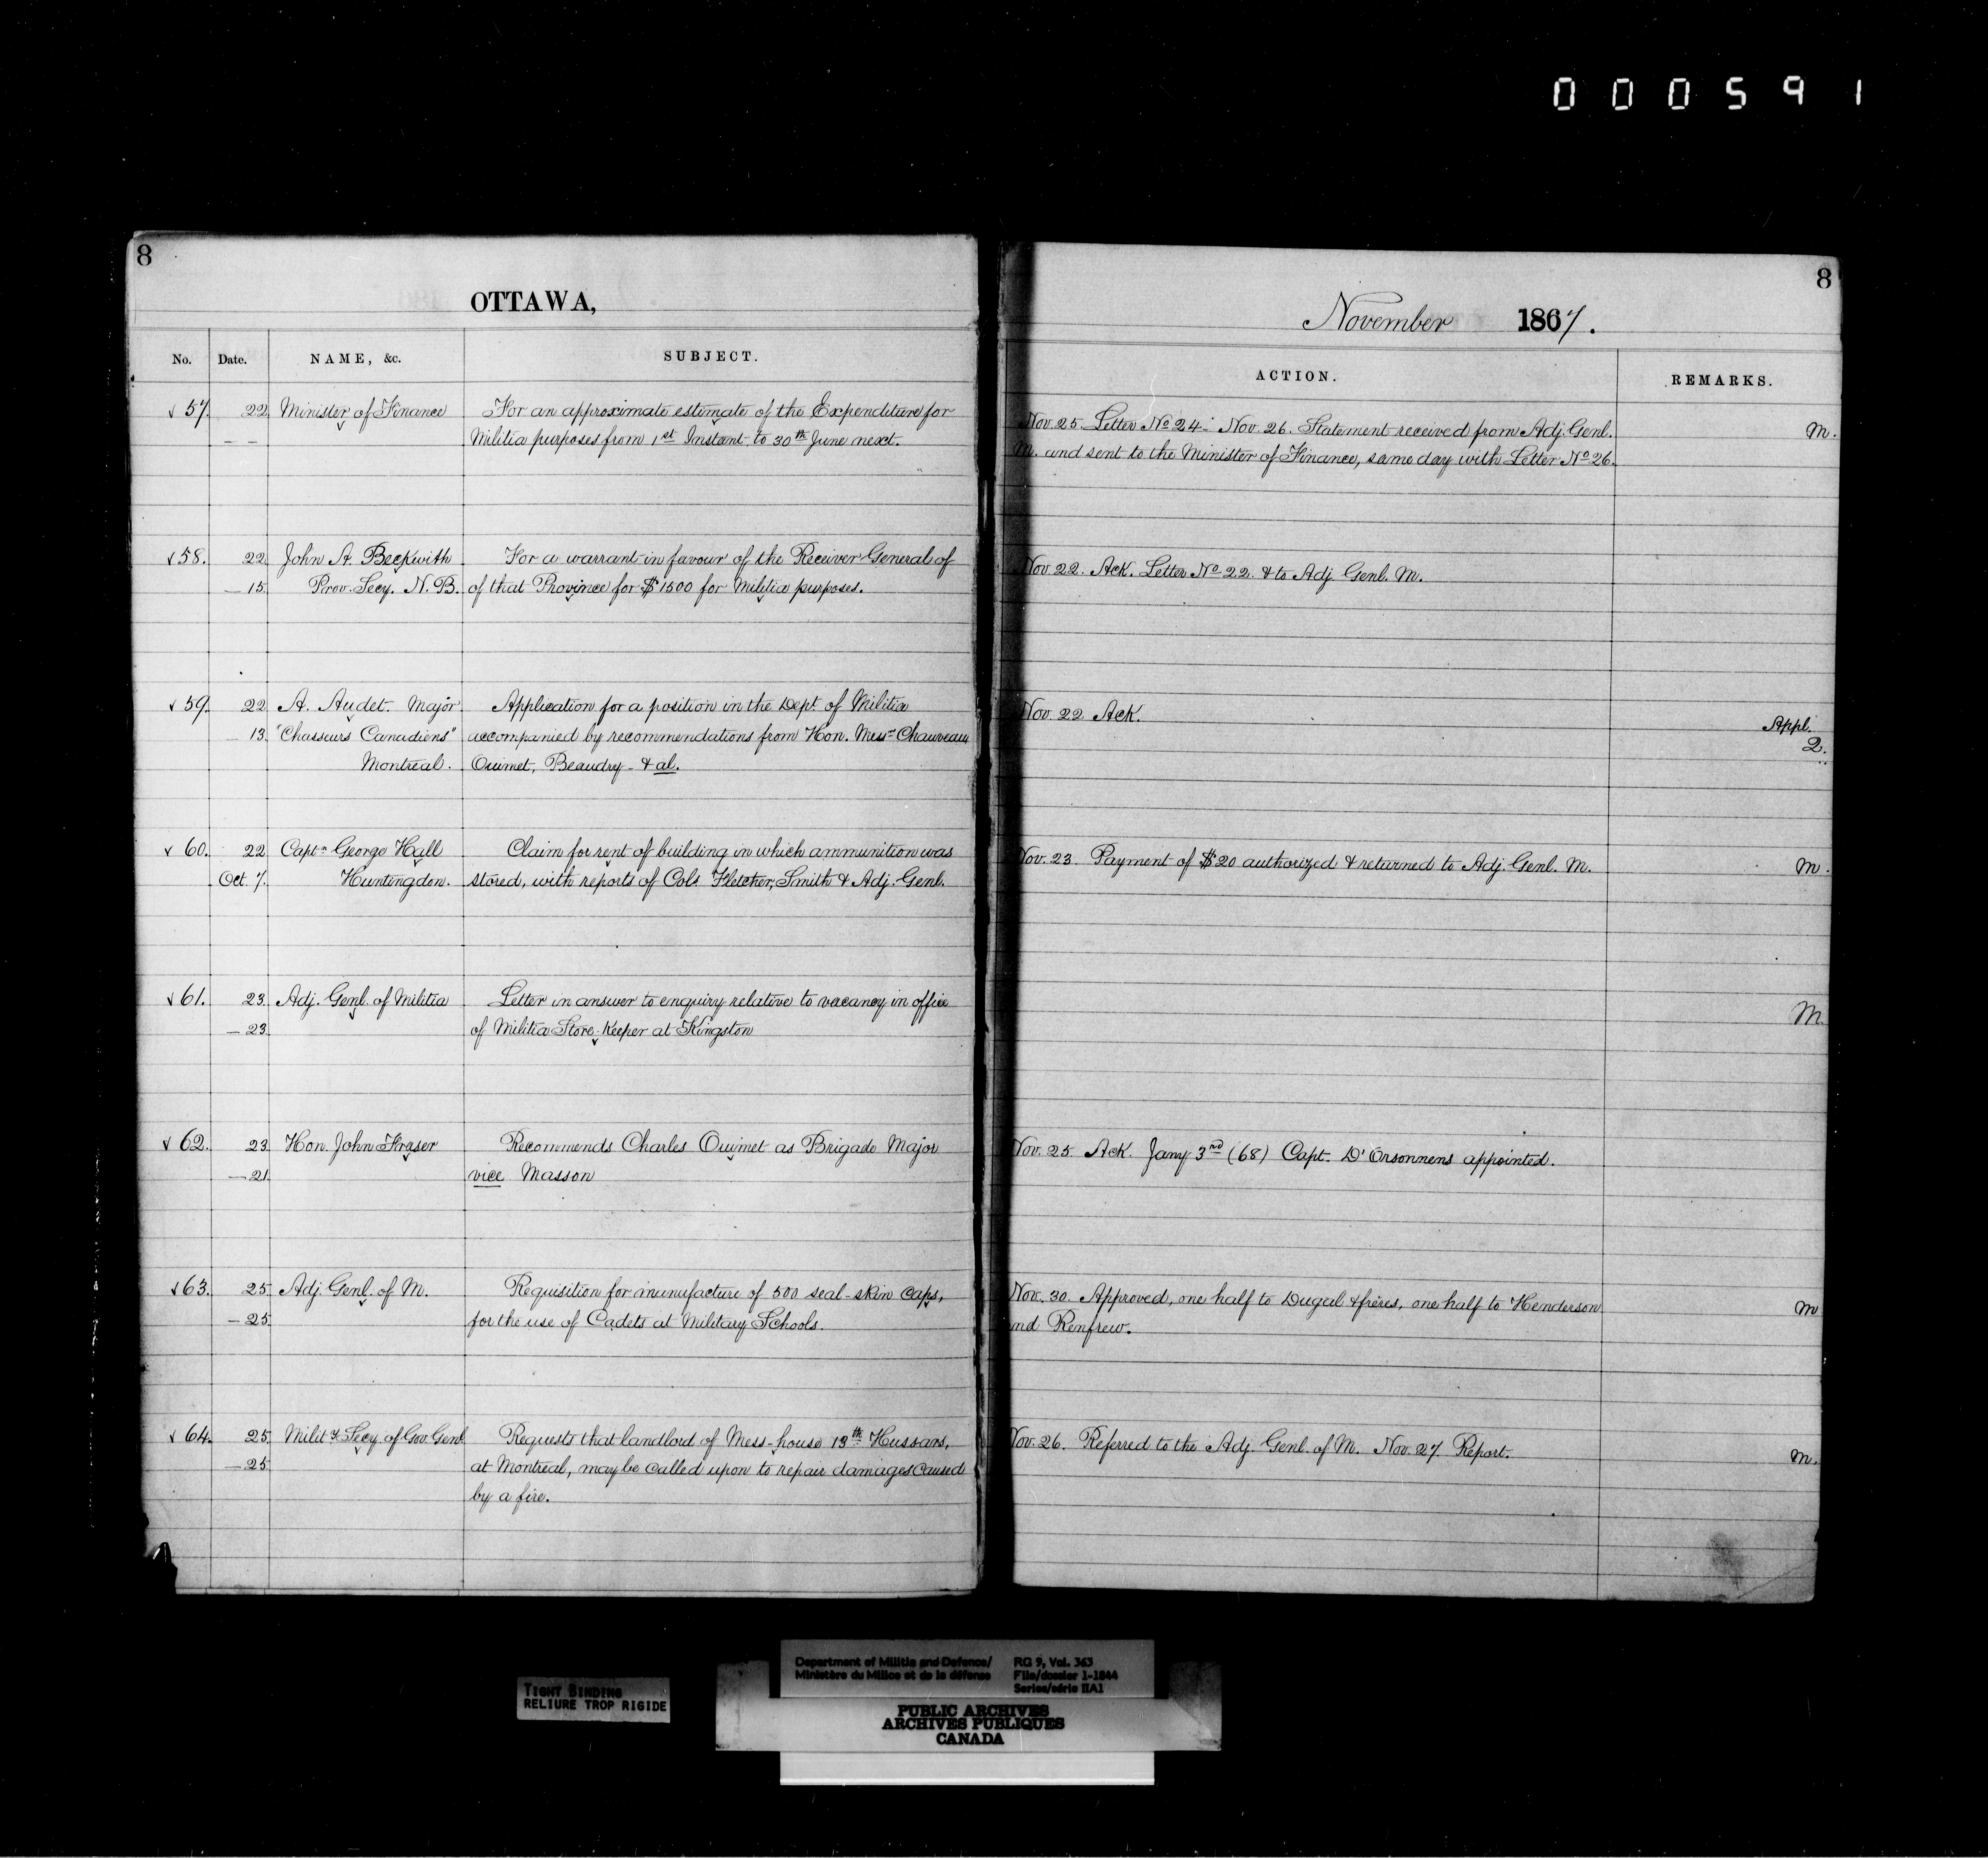 000591
8
OTTAWA,
No. Date. NAME, &c. SUBJECT.
57 22 Minister of Finance For an approximate estimate of the Expenditure for
— — Militia purposes from 1st Instant to 30th June next.
58. 22 John A. Beckwith For a warrant in favour of the Receiver General of
— 15. Prov. Secy. N. B. of that Province for $1500 for Militia purposes.
59. 22 A. Audet. Major Application for a position in the Dept. of Militia
13. "Chasseurs Canadiens" accompanied by recommendations from Hon. Messrs Chauveau
Montreal. Ouimet, Beaudry - & al.
60. 22 Captn. George Hall Claim for rent of building in which ammunition was
Oct. 7. Huntingdon. stored, with reports of Cols. Fletcher, Smith & Adj. Genl.
61. 23. Adj. Genl. of Militia Letter in answer to enquiry relative to vacancy in office
— 23. of Militia Store-Keeper at Kingston
62. 23. Hon. John Fraser Recommends Charles Ouimet as Brigade Major
— 21. vice Masson
63. 25 Adj. Genl. of M. Requisition for manufacture of 500 seal-skin caps,
— 25 for the use of Cadets at Military Schools.
64. 25. Mility Secy. of Gov. Genl Requests that landlord of Mess-house 13th Hussars,
— 25. at Montreal, may be called upon to repair damages caused
by a fire.
8
November 1867.
ACTION. REMARKS.
Nov. 25. Letter No 24 - Nov. 26. Statement received from Adj. Genl. M.
M. and sent to the Minister of Finance, same day with Letter No 26.
Nov 22. Ack. Letter No 22. & to Adj Genl. M.
Nov. 22 Ack. Appl.
2.
Nov. 23 Payment of $20 authorized & returned to Adj. Genl. M. M.
M.
Nov. 25 Ack. Jany 3rd (68) Capt. D'Orsonnens appointed.
Nov. 30 Approved, one half to Dugal & frères, one half to Henderson M
nd Renfrew.
Nov. 26. Referred to the Adj. Genl. of M. Nov. 27. Report. M.
TIGHT BINDING
RELIURE TROP RIGIDE
Department of Militia and Defence/ RG 9, Vol. 363
Ministère du Milice et de la défense File/dossier 1-1844
Series/série IIA1
PUBLIC ARCHIVES
ARCHIVES PUBLIQUES
CANADA